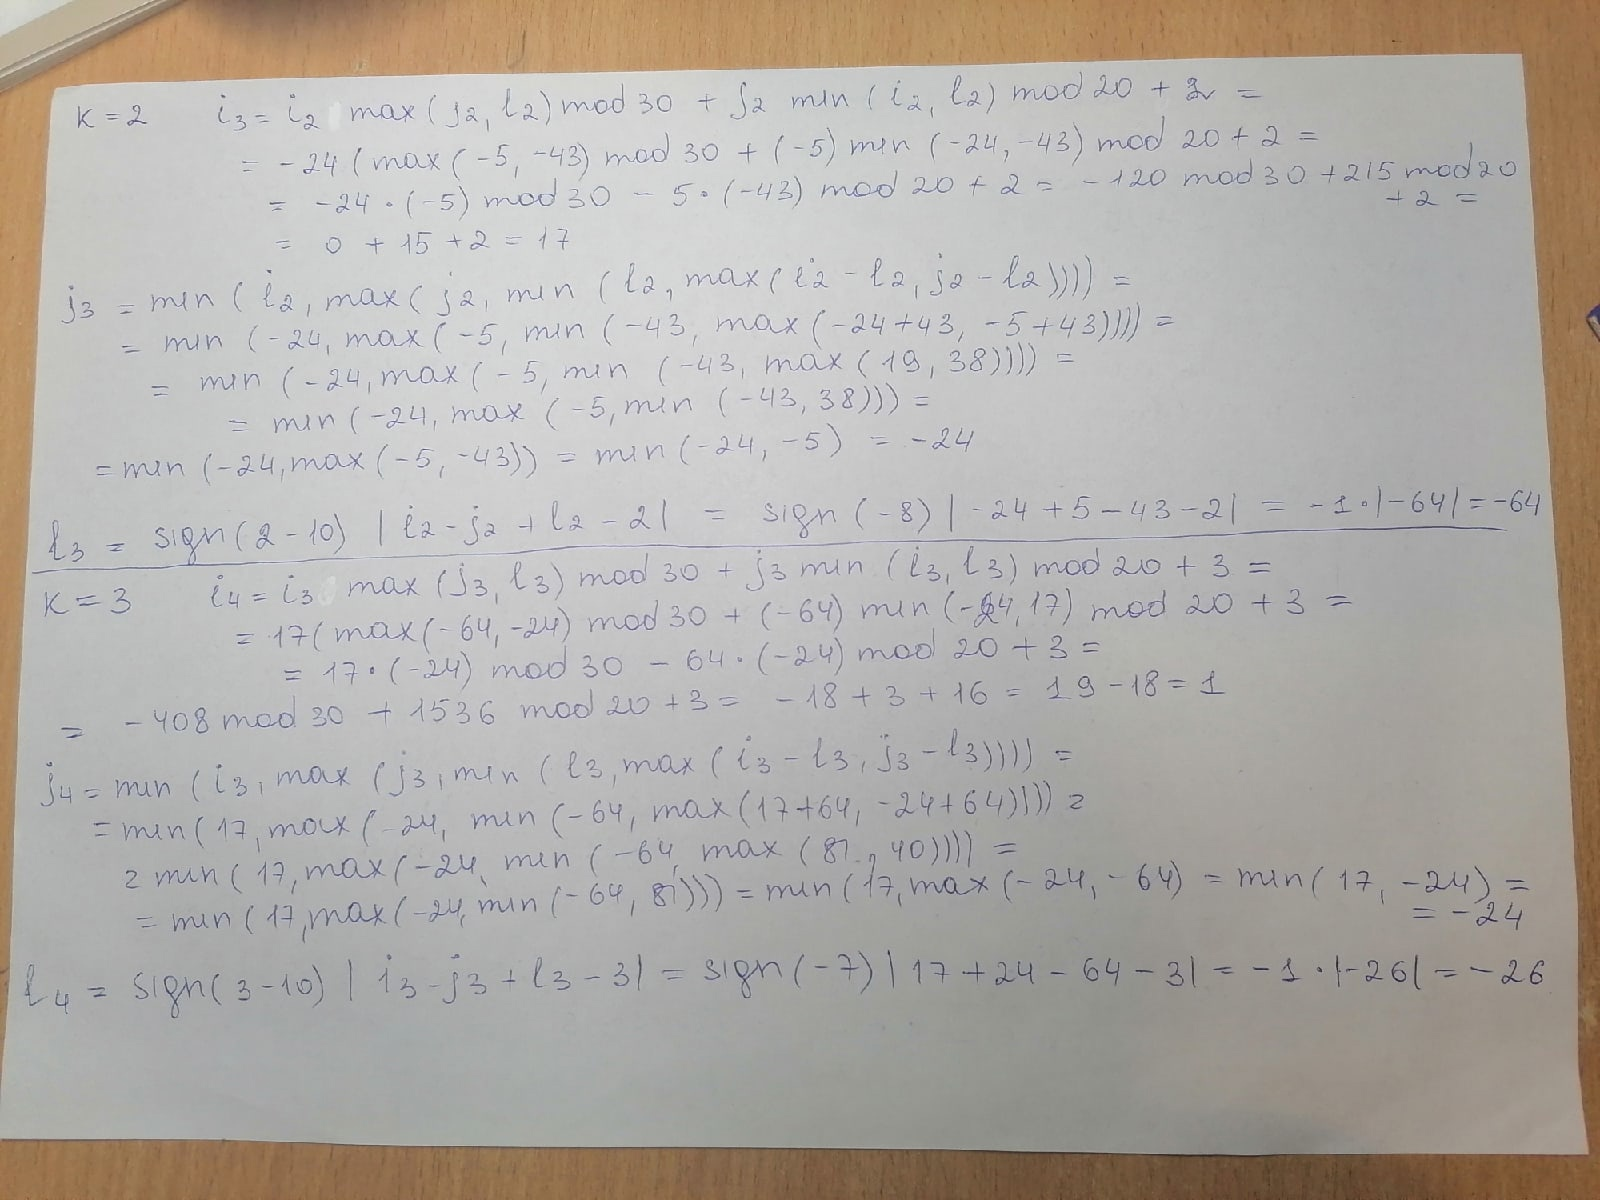 k = 2 i₃ = i₂ max (j₂, l₂) mod 30 + j₂ min (i₂, l₂) mod 20 + 2 =
= -24 (max (-5, -43) mod 30 + (-5) min (-24, -43) mod 20 + 2 =
= -24 · (-5) mod 30 - 5 · (-43) mod 20 + 2 = -120 mod 30 + 215 mod 20
+ 2 =
= 0 + 15 + 2 = 17
j₃ = min (i₂, max (j₂, min (l₂, max (i₂ - l₂, j₂ - l₂)))) =
= min (-24, max (-5, min (-43, max (-24+43, -5+43)))) =
= min (-24, max (-5, min (-43, max (19, 38)))) =
= min (-24, max (-5, min (-43, 38))) =
= min (-24, max (-5, -43)) = min (-24, -5) = -24
l₃ = sign (2-10) | i₂ - j₂ + l₂ - 2 | = sign (-8) | -24 + 5 - 43 - 2 | = -1 · |-64| = -64
k = 3 i₄ = i₃ max (j₃, l₃) mod 30 + j₃ min (i₃, l₃) mod 20 + 3 =
= 17 (max (-64, -24) mod 30 + (-64) min (-24, 17) mod 20 + 3 =
= 17 · (-24) mod 30 - 64 · (-24) mod 20 + 3 =
= -408 mod 30 + 1536 mod 20 + 3 = -18 + 3 + 16 = 19 - 18 = 1
j₄ = min (i₃, max (j₃, min (l₃, max (i₃ - l₃, j₃ - l₃)))) =
= min (17, max (-24, min (-64, max (17+64, -24+64)))) =
= min (17, max (-24, min (-64, max (81, 40)))) =
= min (17, max (-24, min (-64, 81))) = min (17, max (-24, -64) = min (17, -24) =
= -24
l₄ = sign (3-10) | i₃ - j₃ + l₃ - 3 | = sign (-7) | 17 + 24 - 64 - 3 | = -1 · |-26| = -26